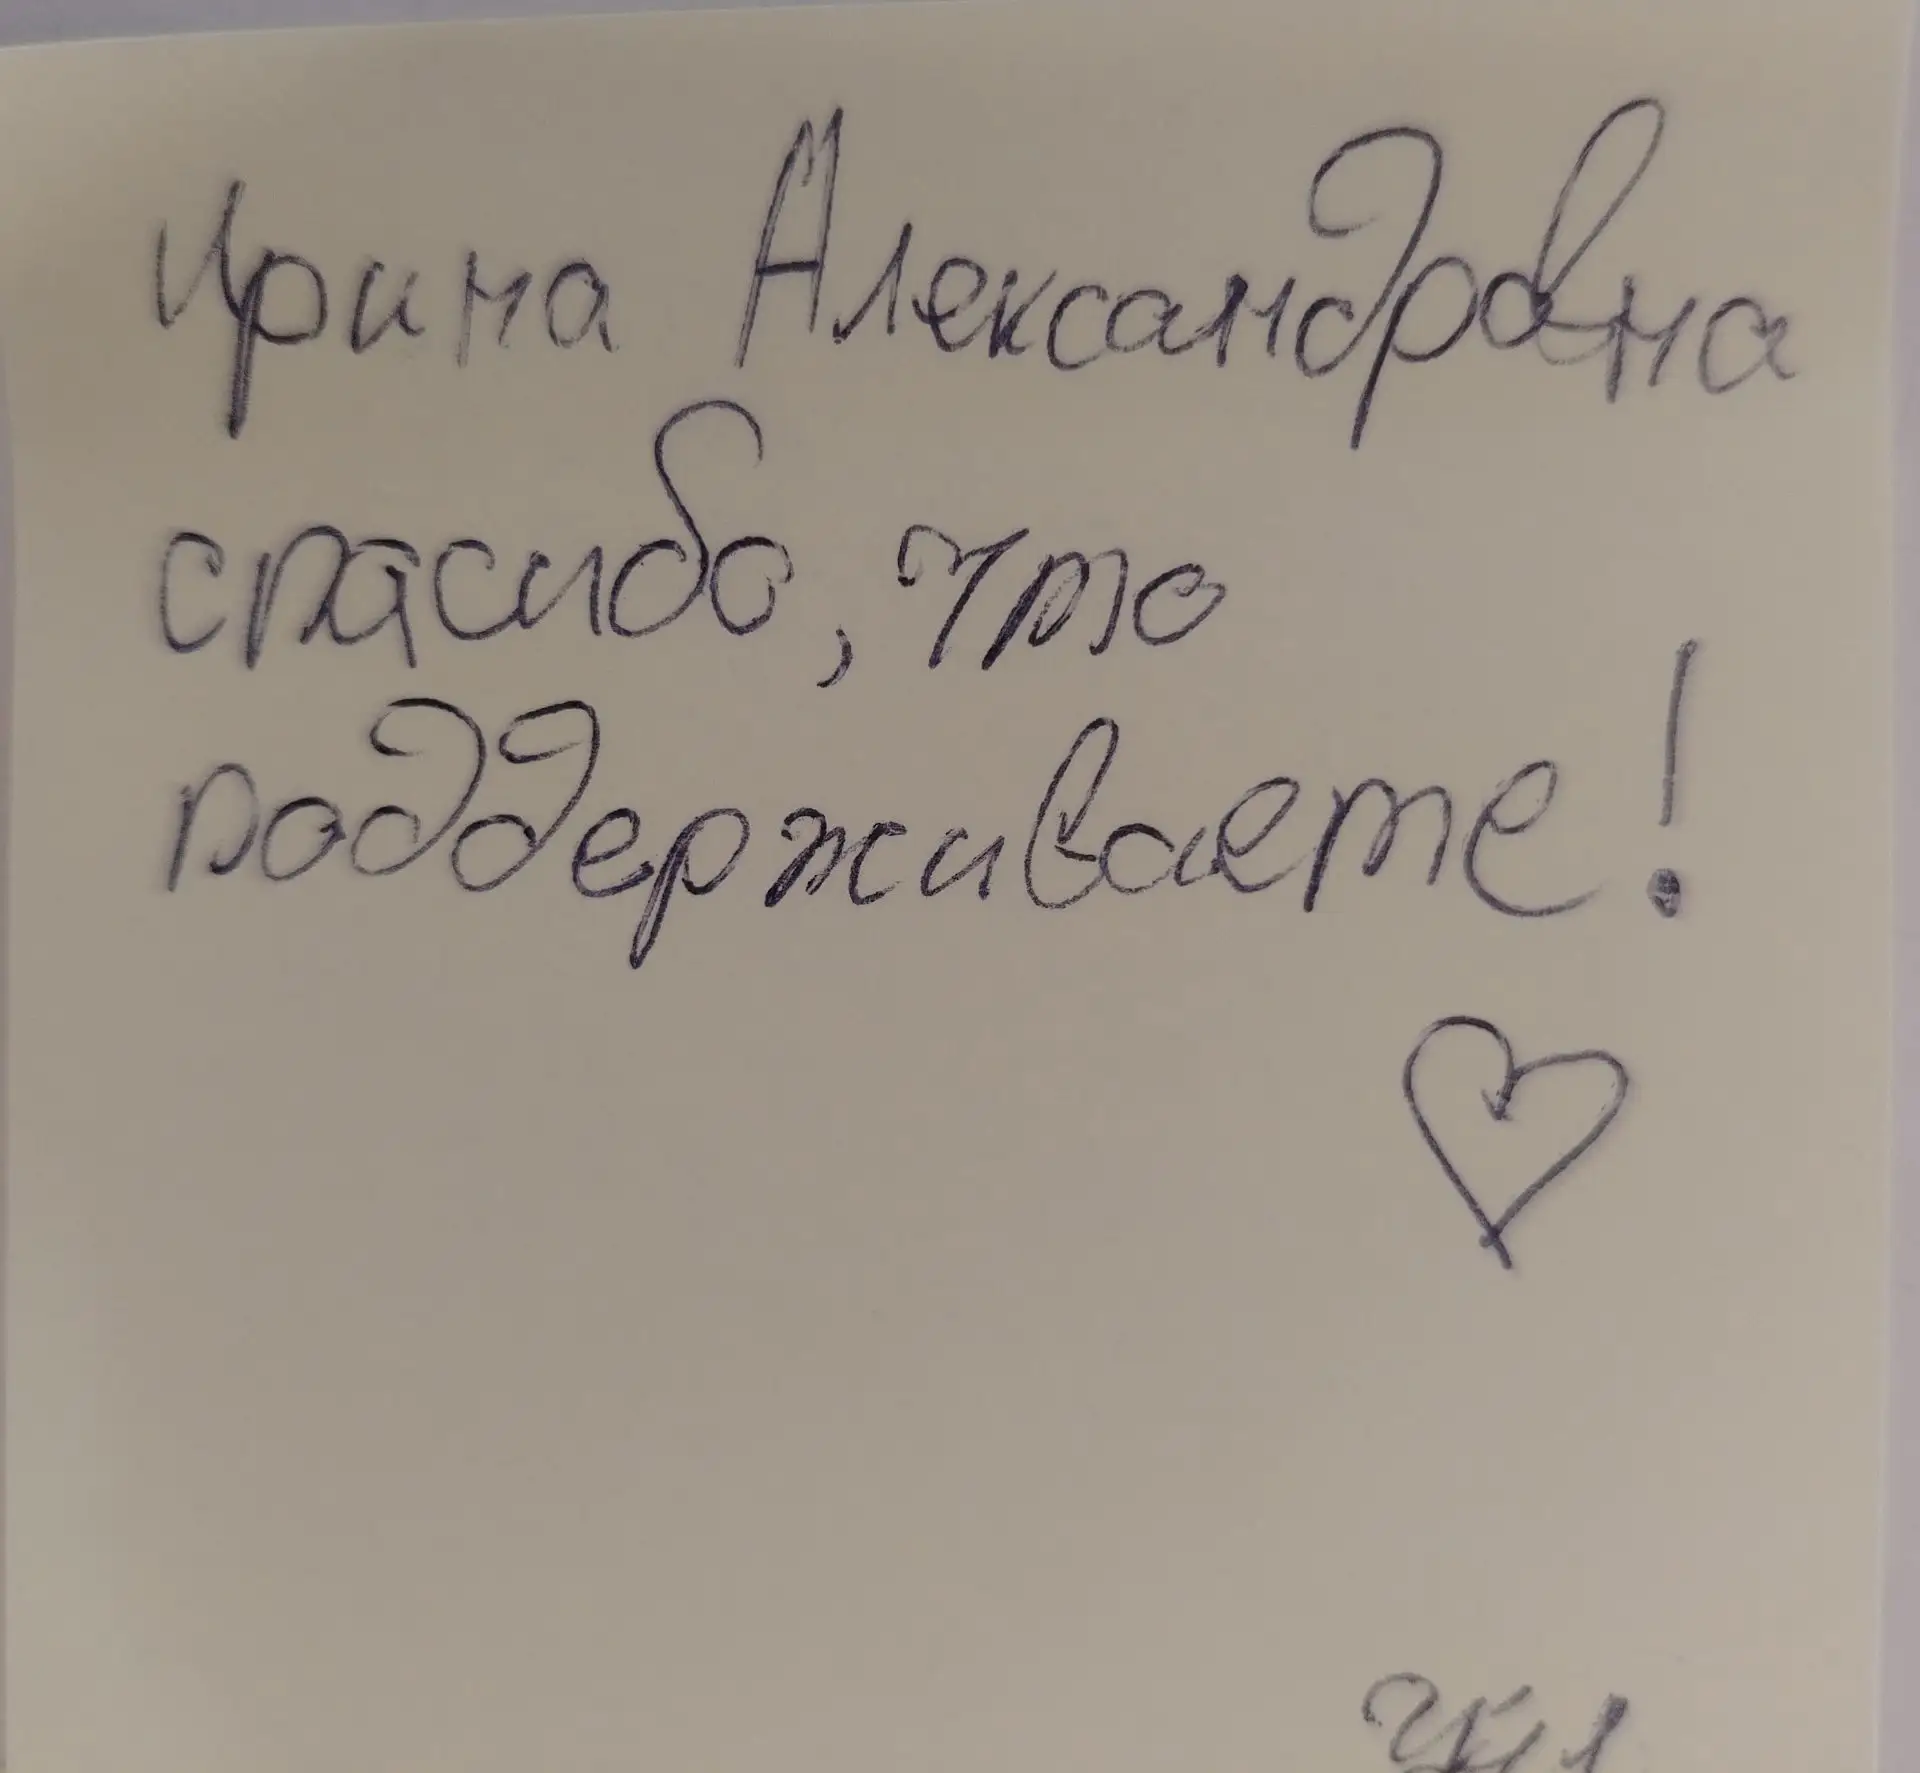 Ирина Александровна
спасибо, что
поддерживаете!